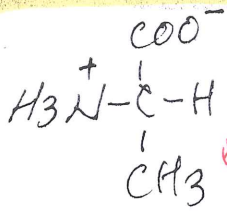 COO⁻
H3N⁺-C-H
CH3